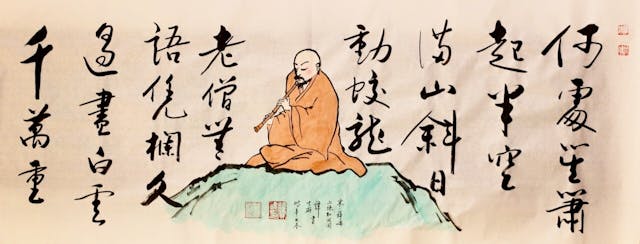 何處笙簫
起半空
滿山斜日
動蛟龍
老僧無
語凭欄久
過盡白雲
千萬重